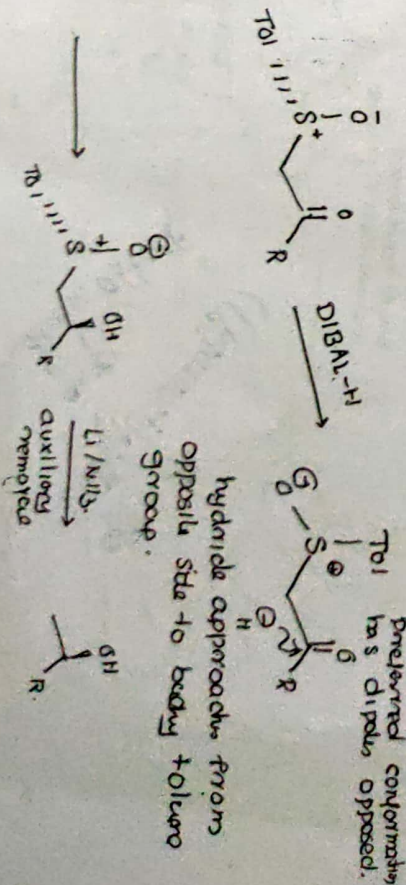 O⁻
Tol S⁺ O
R
DIBAL-H
Preferred conformation
has dipoles opposed.
Tol
O⁻ S ⊕ O
⊖ H R
hydride approaches from
opposite side to bulky toluene
group.
O⊖
Tol S + OH
R
Li/NH3.
auxiliary
removal
OH
R.